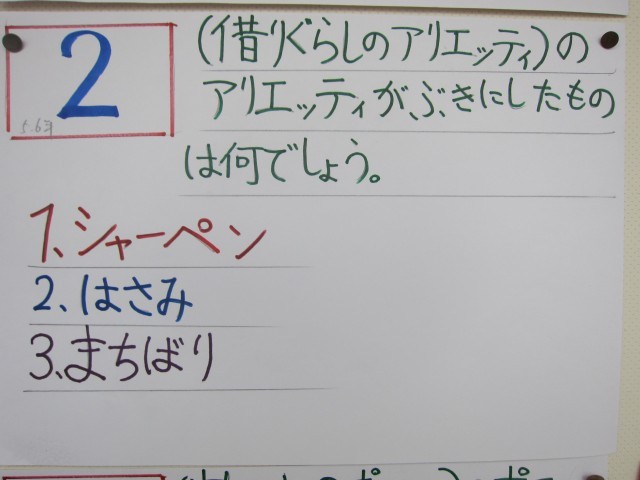 2
(借りぐらしのアリエッティ)の
アリエッティが、ぶきにしたもの
は何でしょう。
1、シャーペン
2、はさみ
3、まちばり